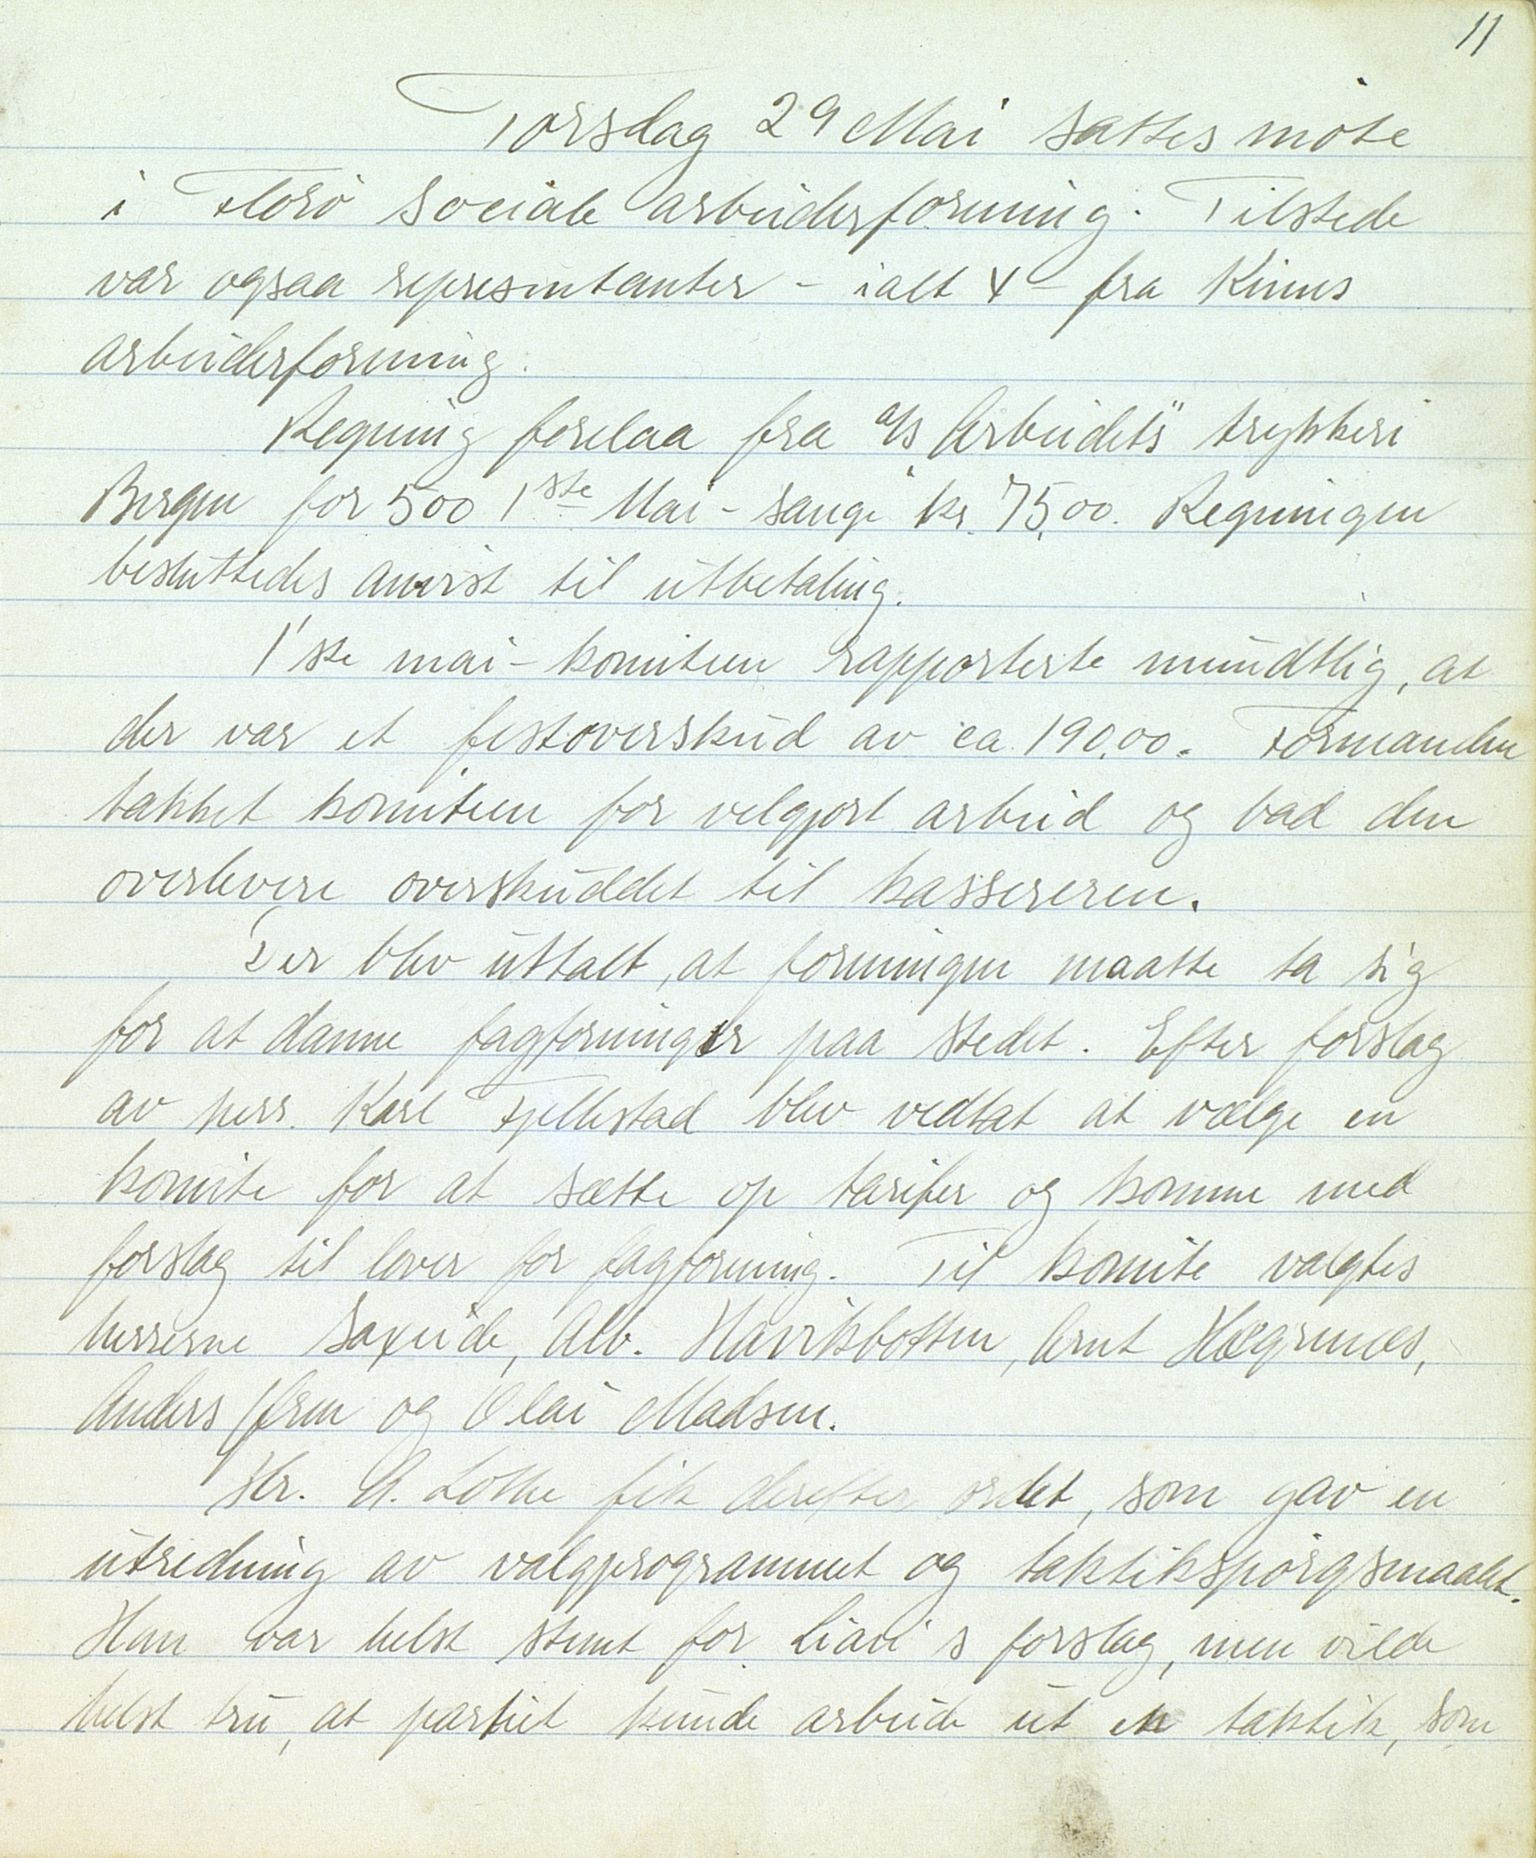 11
Torsdag 29 Mai sattes møte
i Florø sociale arbeiderforening. Tilstede
var ogsaa representanter – ialt 4 – fra Kinns
arbeiderforening.
Regning forelaa fra a/s Arbeidets" trykkeri
Bergen for 500 1ste Mai – sange kr. 75,00. Regningen
besluttedes anvist til utbetaling.
1'ste mai – komiteen rapporterte mundtlig, at
der var et festoverskud av ca 190,00. Formanden
takket komiteen for velgjort arbeid og bad den
overlevere overskuddet til kassereren.
Der blev uttalt, at foreningen maatte ta sig
for at danne fagforeninger paa stedet. Efter forslag
av herr. Karl Fjellestad blev vedtat at vælge en
komite for at sætte op tarifer og komme med
forslag til lover for fagforening. Til komite valgtes
herrerne Saxeide, Alb. Havikbotten, Arnt Hægrenæs,
Anders Øren og Olai Madsen.
Hr. A. Lothe fik derefter ordet, som gav en
utredning av valgprogrammet og taktikspørgsmaalet.
Han var helst stemt for Lian's forslag, men vilde
helst tru, at partiet kunde arbeide ut en taktik, som